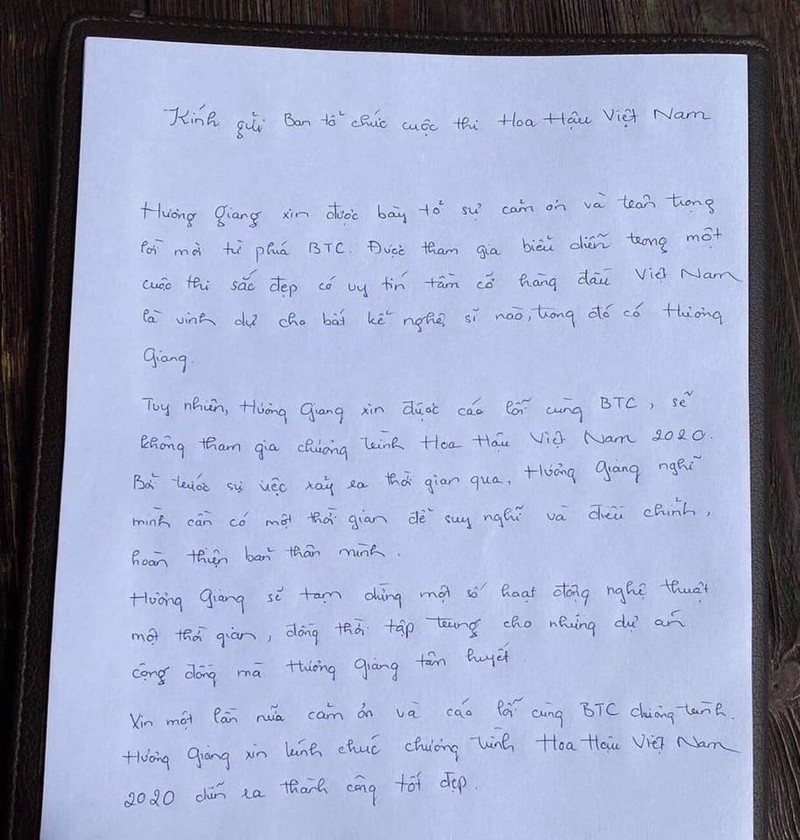 Kính gửi Ban tổ chức cuộc thi Hoa Hậu Việt Nam
Hương Giang xin được bày tỏ sự cảm ơn và trân trọng
lời mời từ phía BTC. Được tham gia biểu diễn trong một
cuộc thi sắc đẹp có uy tín tầm cỡ hàng đầu Việt Nam
là vinh dự cho bất kể nghệ sĩ nào, trong đó có Hương
Giang.
Tuy nhiên, Hương Giang xin được cáo lỗi cùng BTC, sẽ
không tham gia chương trình Hoa Hậu Việt Nam 2020.
Bởi trước sự việc xảy ra thời gian qua, Hương Giang nghĩ
mình cần có một thời gian để suy nghĩ và điều chỉnh,
hoàn thiện bản thân mình.
Hương Giang sẽ tạm dừng một số hoạt động nghệ thuật
một thời gian, đồng thời tập trung cho những dự án
cộng đồng mà Hương Giang tâm huyết
Xin một lần nữa cảm ơn và cáo lỗi cùng BTC chương trình.
Hương Giang xin kính chúc chương trình Hoa Hậu Việt Nam
2020 diễn ra thành công tốt đẹp.